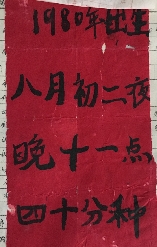 1980年出生
八月初二夜
晚十一点
四十分种